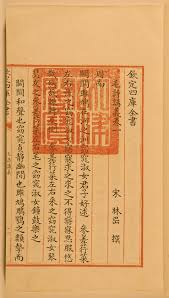 欽定四庫全書
毛詩講義卷一
宋 林岊 撰
周南
關關雎鳩在河之洲窈窕淑女君子好逑參差荇菜
左右流之窈窕淑女寤寐求之求之不得寤寐思服
悠哉悠哉輾轉反側參差荇菜左右采之窈窕淑女琴
瑟友之參差荇菜左右芼之窈窕淑女鍾鼓樂之
關關和聲也窈窕貞靜幽閒也雎鳩鵰鶚之類摯而